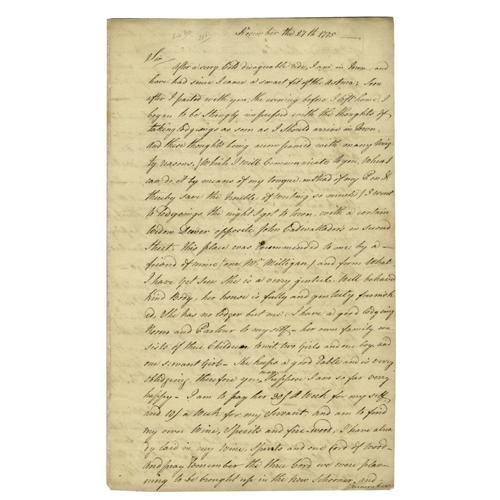 November the 27th 1775
Sir
After a very Cold disagreable ride, I am in Town and
have had since I came a smart fit of the Astma; Soon
after I parted with you, the evening before I left home, I
began to be Strongly impressed with the thoughts of
taking lodgings as soon as I should arrive in Town,
and these thoughts being accompanied with many
ty reasons, (Which I will Communicate to you, When I
can do it by means of my tongue instead of my Pen &
thereby save the trouble of writing so much) I went
to Lodgings the night I got to town with a certain
Widow opposite John Cadwalladers in Second
Street. this place was Recommended to me by a
friend of mine (one Wm Milligan) and from What
I have yet seen She is a very genteele Well behaved
kind Body, her house is fully and genteely furnish
ed, She has no Lodger but me. I have a good lodging
Room and Parlour to my self, her own family con
sists of three Children to wit, two Girls and one boy, and
one servant Girl - She keeps a good Table and is very
obliging, therefore you may Suppose I am so far very
happy - I am to pay her 30/ a Week for my self
and 10/ a Week for my Servant, and am to find
my own Wine, Spirits and fire-wood. I have alrea
dy laid in my Wine, Spirits and one Cord of wood
and pray remember the three Cord we were plan
ning to be brought up in the New Schooner, and